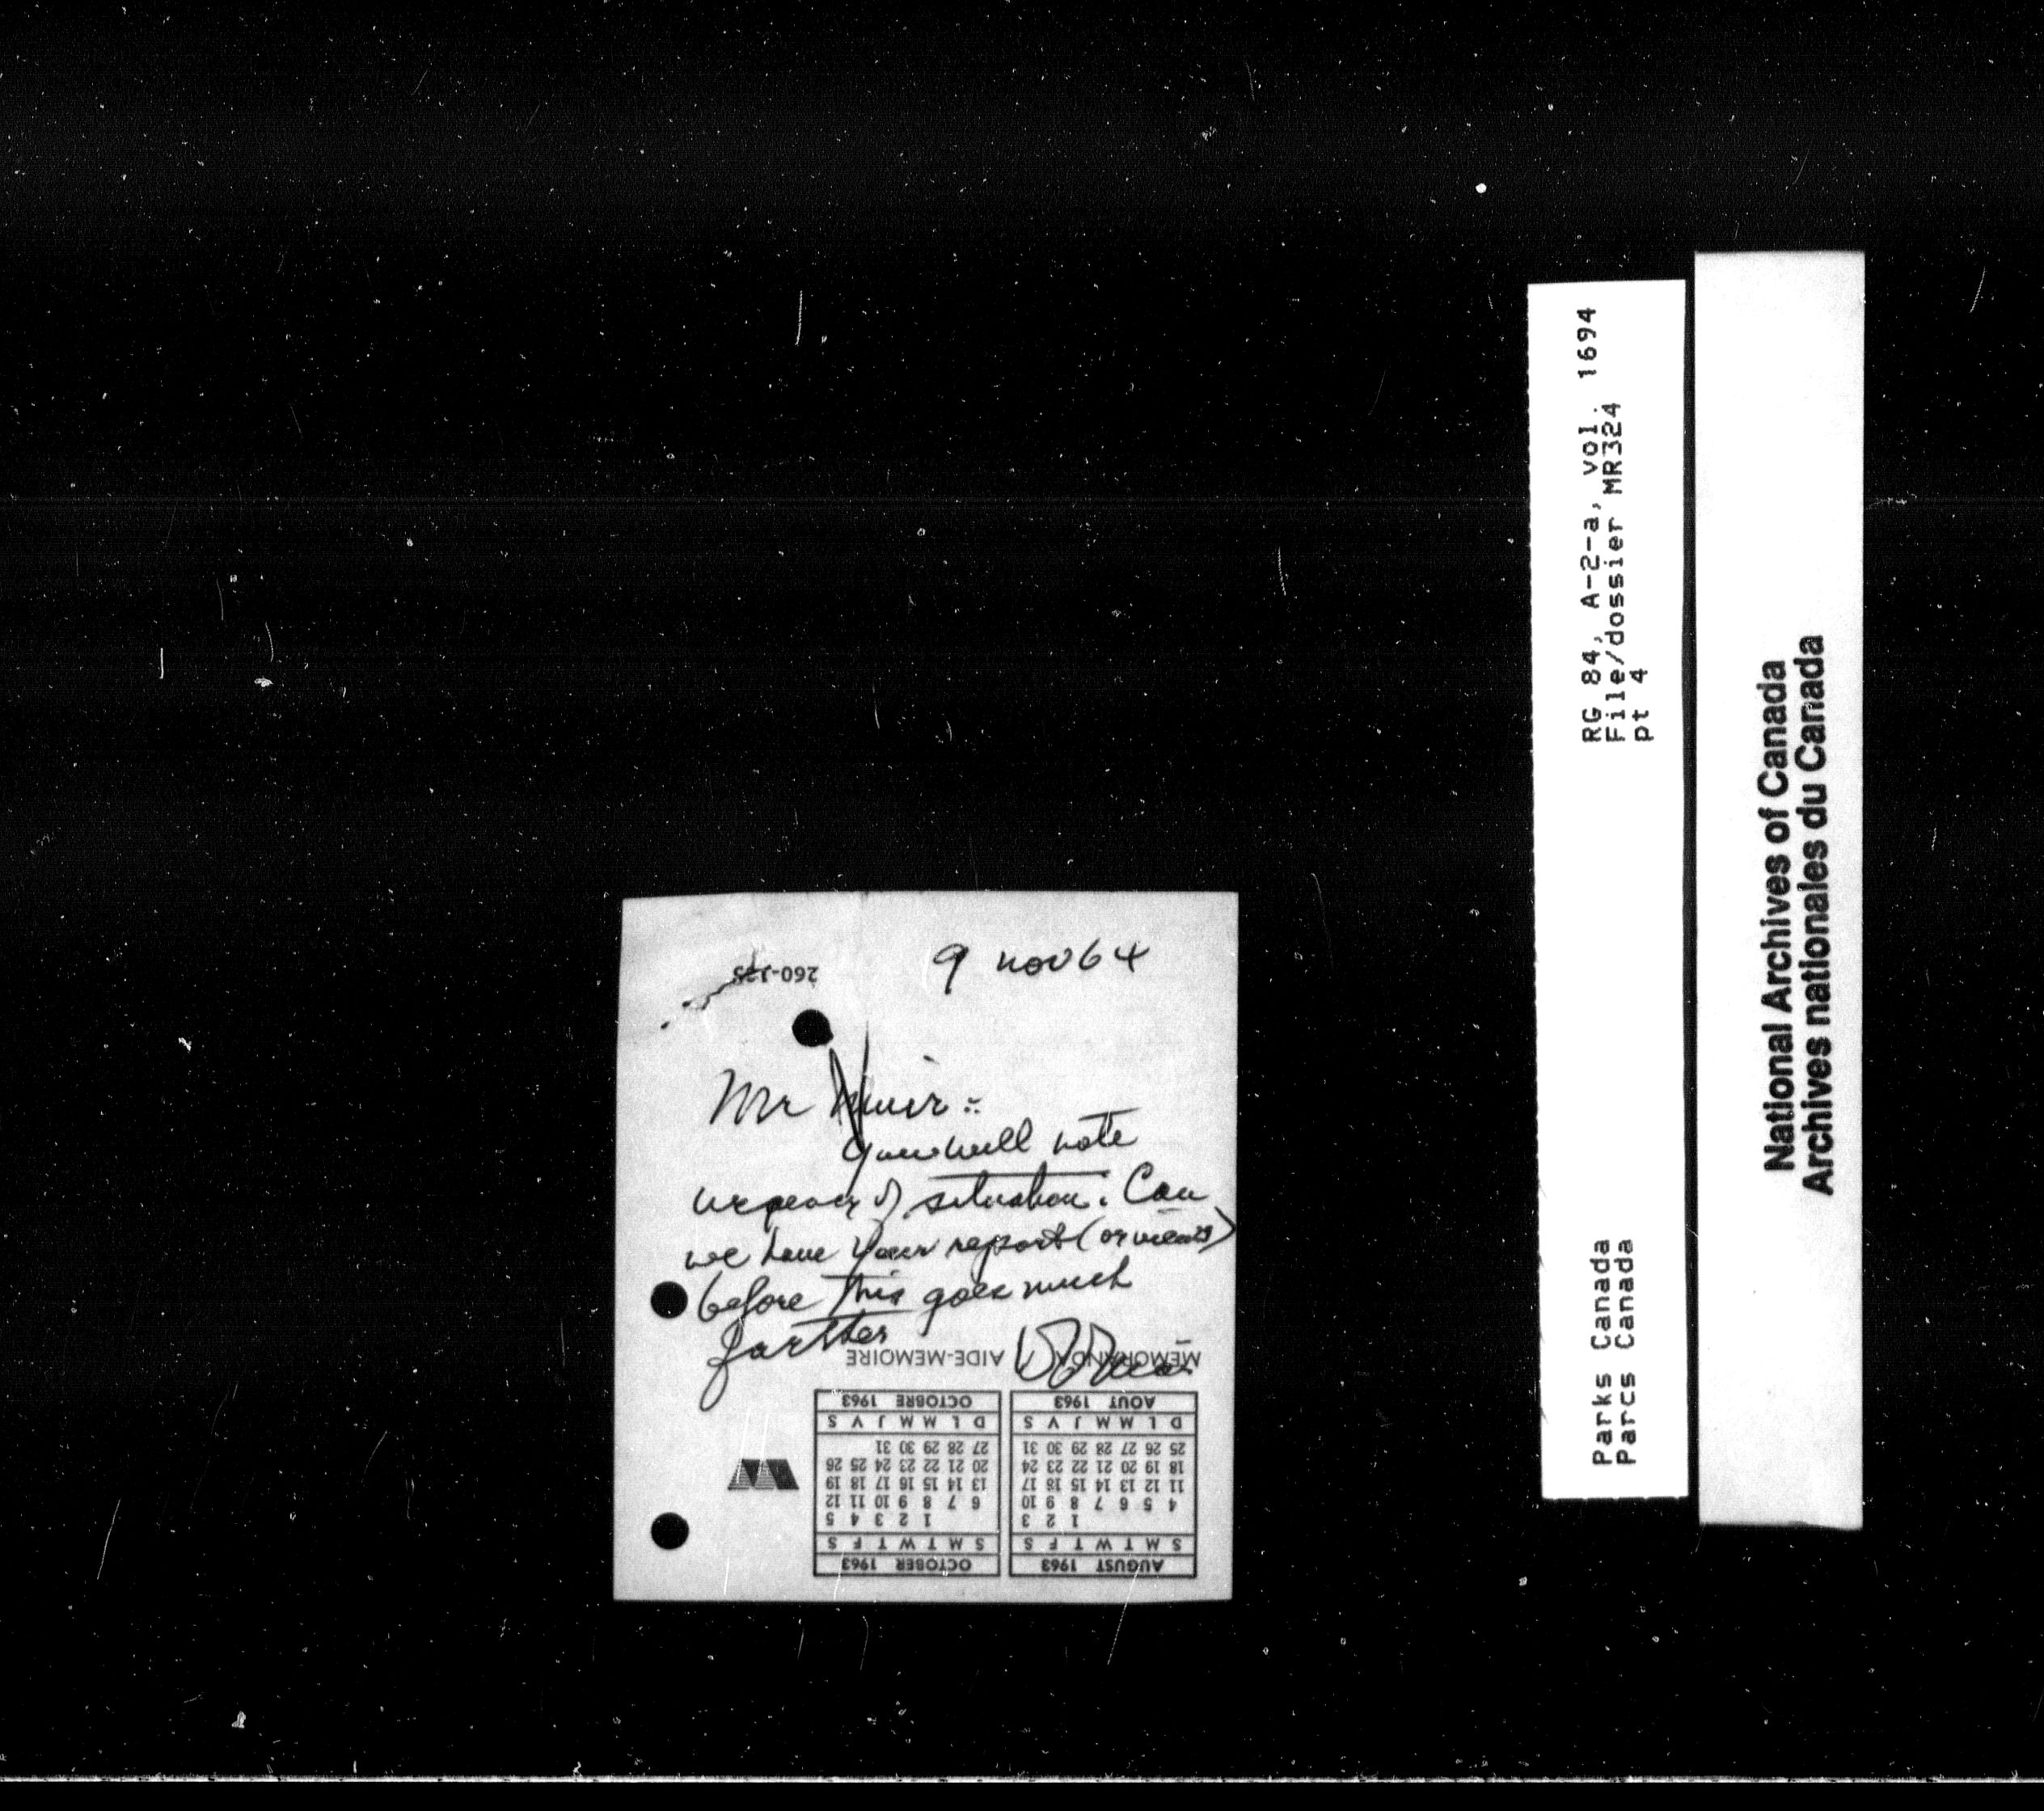 9 Nov 64
260-J25
Mr Muir :-
You will note
urgency of situation. Can
we have your report (or views)
before this goes much
further
MEMORANDA AIDE-MEMOIRE
AUGUST 1963
S M T W T F S
1 2 3
4 5 6 7 8 9 10
11 12 13 14 15 16 17
18 19 20 21 22 23 24
25 26 27 28 29 30 31
D L M M J V S
AOUT 1963
OCTOBER 1963
S M T W T F S
1 2 3 4 5
6 7 8 9 10 11 12
13 14 15 16 17 18 19
20 21 22 23 24 25 26
27 28 29 30 31
D L M M J V S
OCTOBRE 1963
RG 84, A-2-a, vol. 1694
File/dossier MR324
pt 4
Parks Canada
Parcs Canada
National Archives of Canada
Archives nationales du Canada